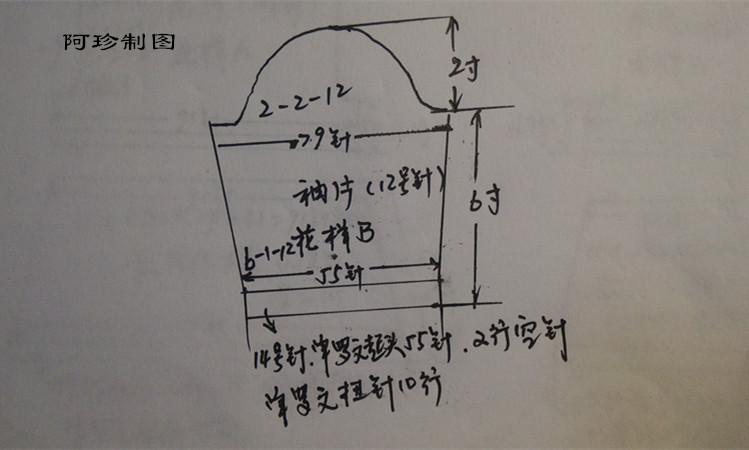 阿珍制图
2寸
2-2-12
79针
袖片(12号针)
6寸
6-1-12花样B
55针
14号针.单罗文起头55针.2行空针
单罗文扭针10行